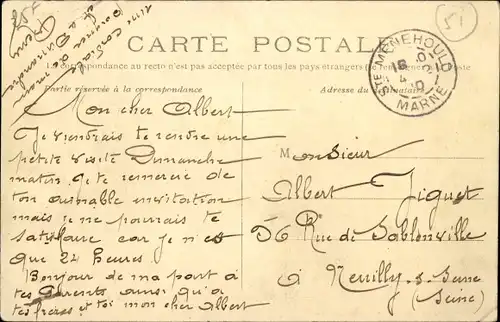 CARTE POSTALE
La correspondance au recto n'est pas acceptée par tous les pays étrangers
Partie réservée à la correspondance
Adresse du
Mon cher Albert
Je viendrais te rendre une
petite visite Dimanche
matin. Je te remercie de
ton aimable invitation
mais je ne pourrais te
satisfaire car je n'ai
que 24 heures.
Bonjour de ma part à
tes Parents ainsi qu'à
tes frères et toi mon cher Albert
Une cordiale
poignée de main
et à Dimanche
Henri
STE MENEHOULD
MARNE
Monsieur
Albert Jiguet
56 Rue de Sablonville
à Neuilly-s-Seine
(Seine)